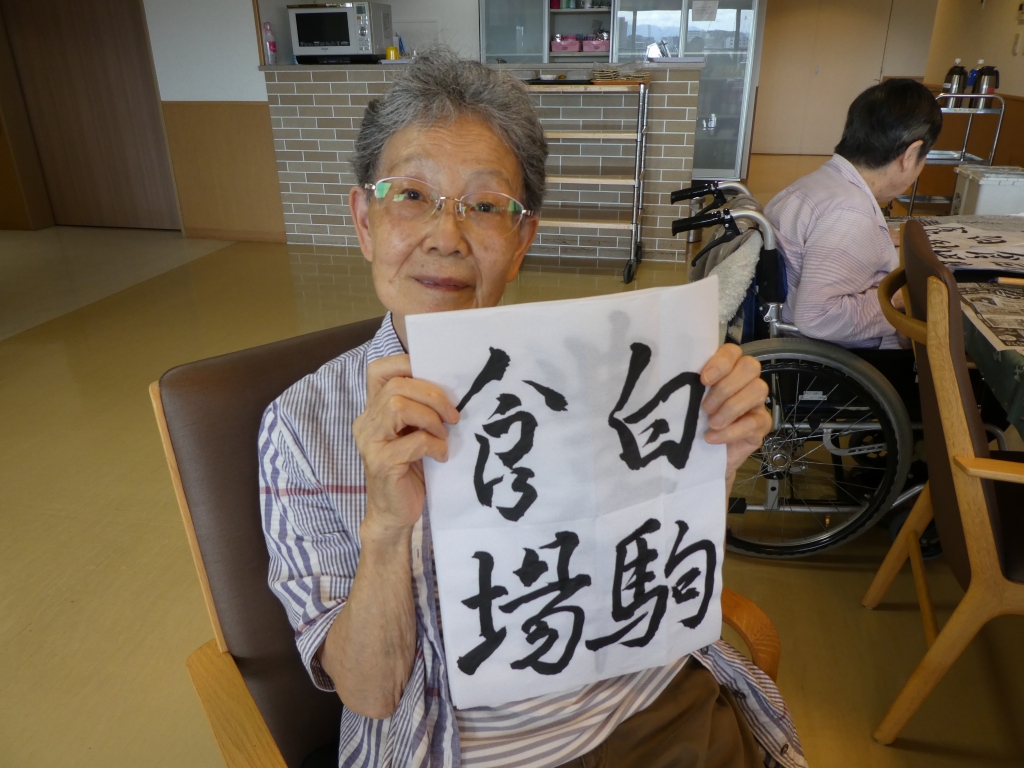 白駒
食場